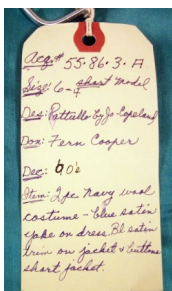 Acq# 55.86.3.A
Size: 6-4 short model
Des: Pattullo by Jo Copeland
Don: Fern Cooper
Dec: 60's
Item: 2 pc navy wool
costume - blue satin
yoke on dress. Bl satin
trim on jacket & buttons
short jacket.